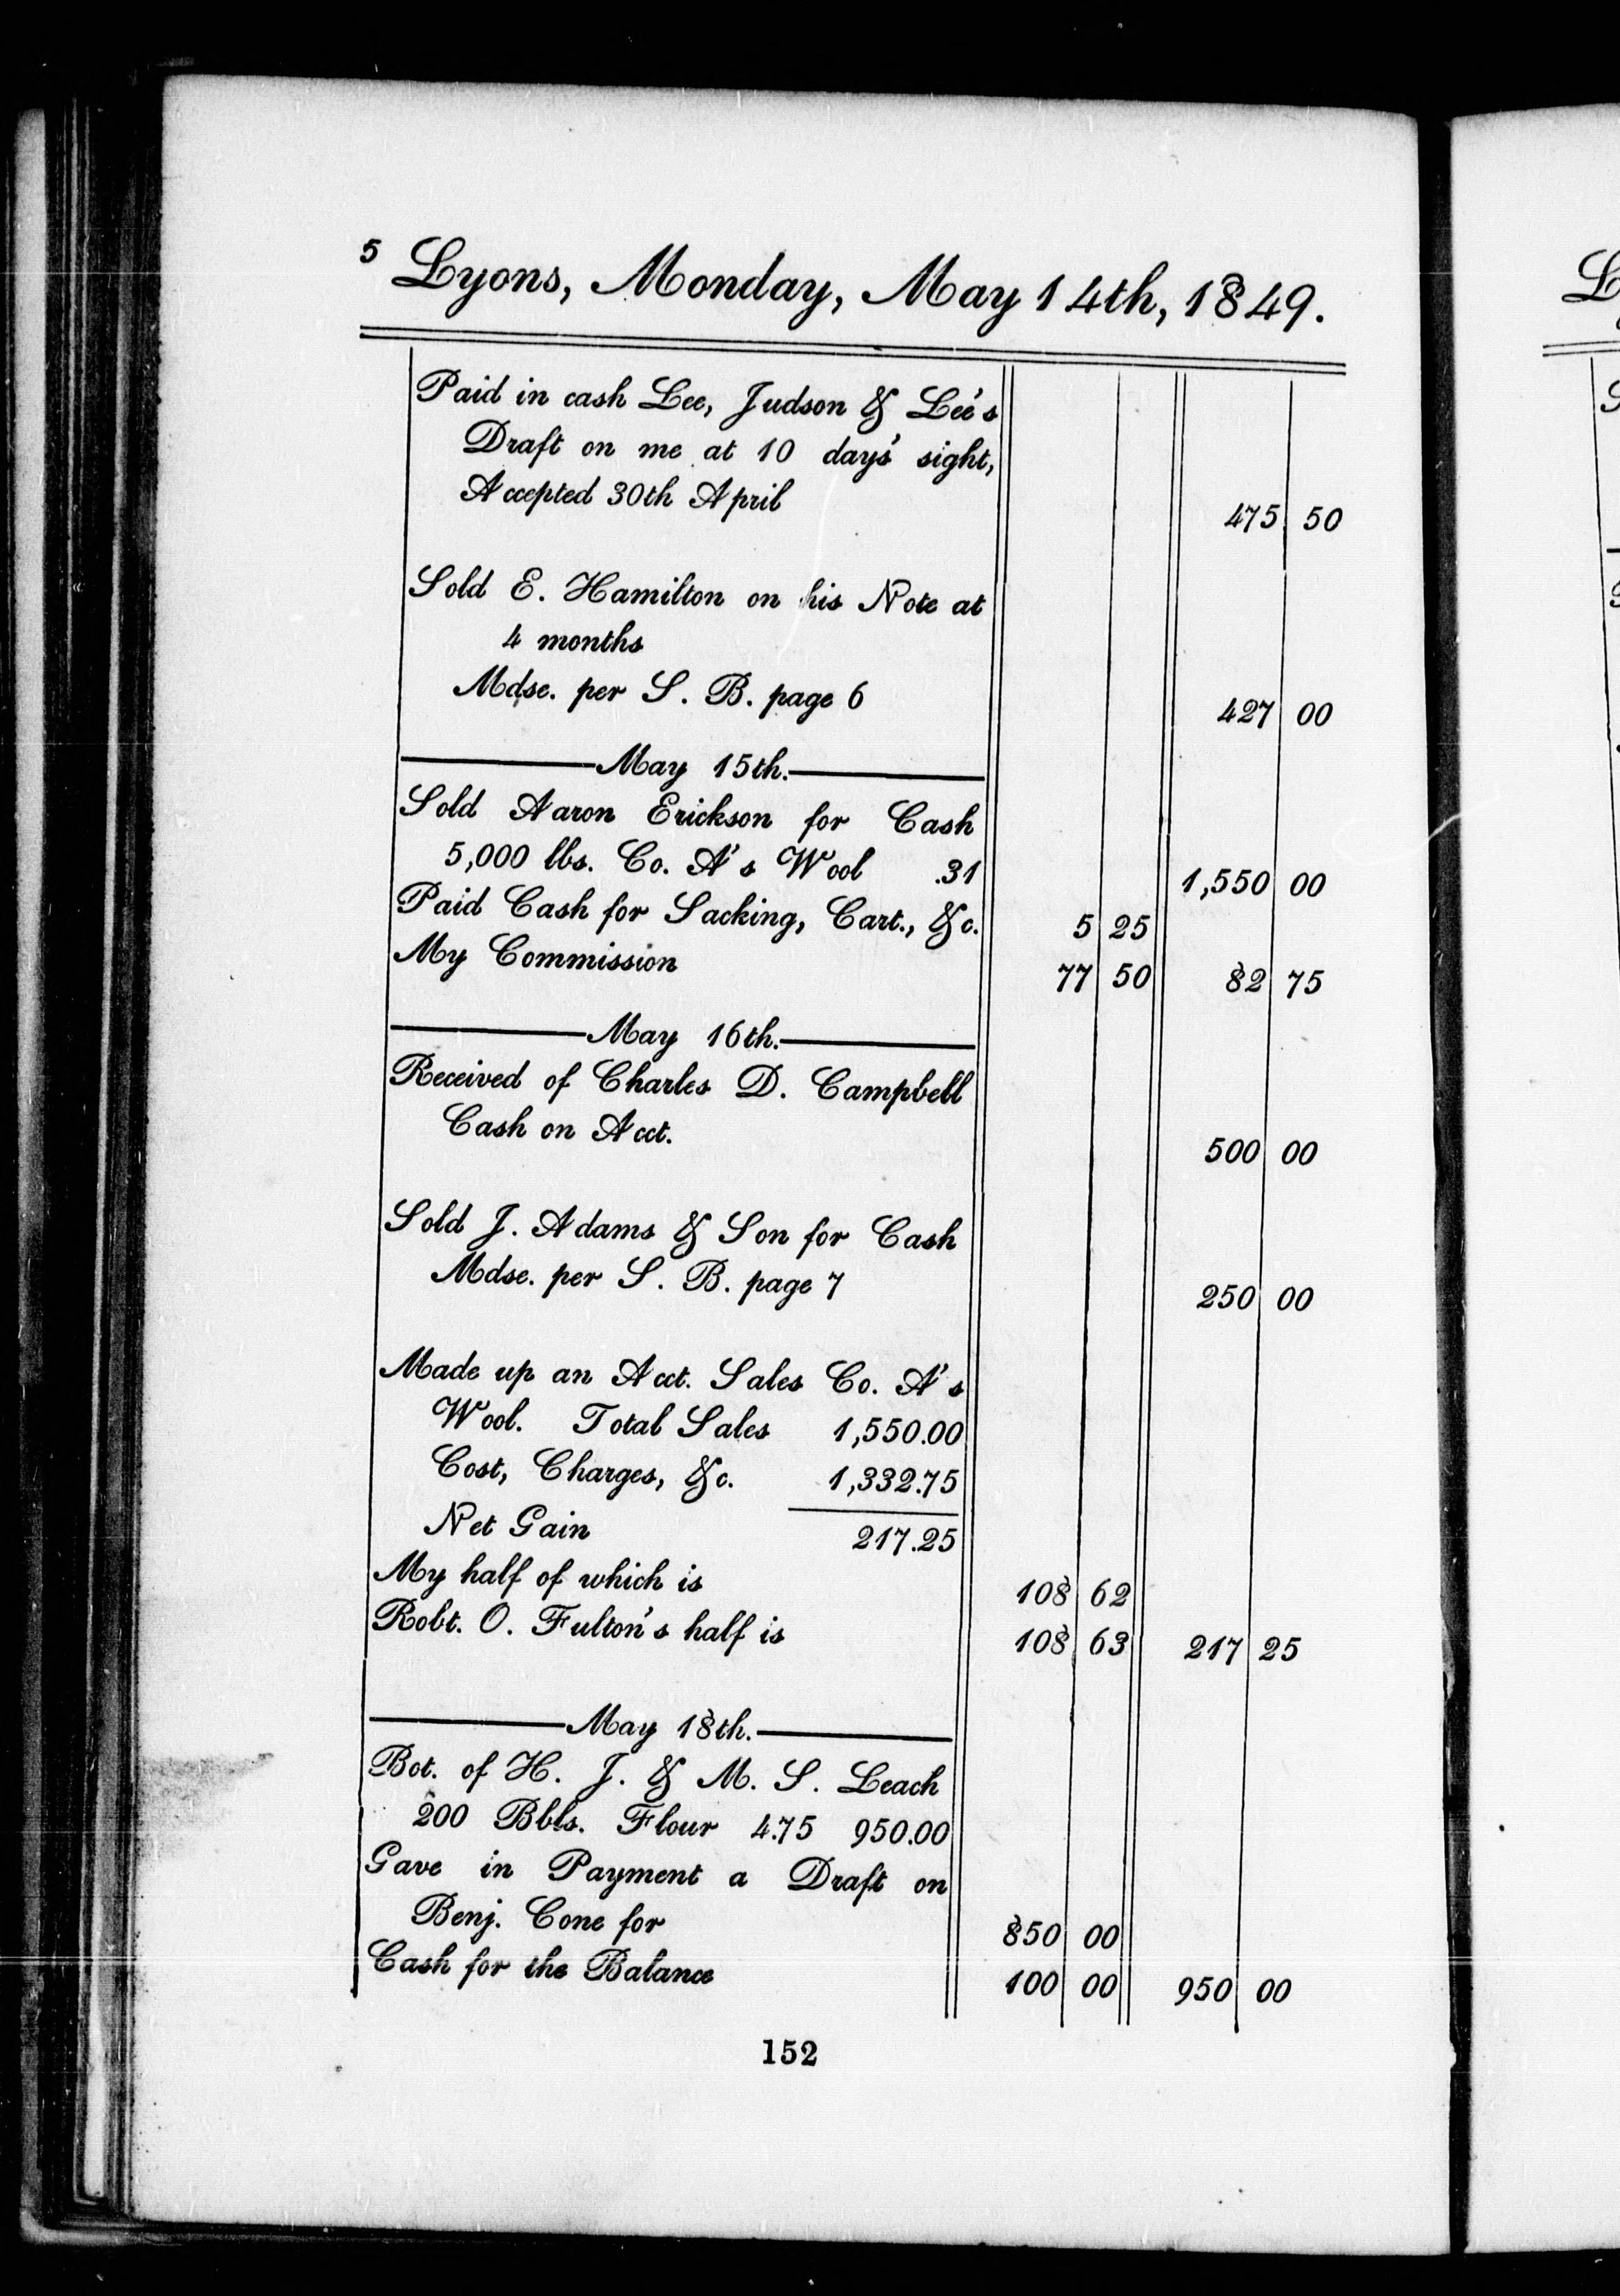 5 Lyons, Monday, May 14th, 1849.
Paid in cash Lee, Judson & Lee's
Draft on me at 10 days' sight,
Accepted 30th April 475 50
Sold E. Hamilton on his Note at
4 months
Mdse. per S. B. page 6 427 00
May 15th.
Sold Aaron Erickson for Cash
5,000 lbs. Co. A's Wool .31 1,550 00
Paid Cash for Sacking, Cart., &c. 5 25
My Commission 77 50 82 75
May 16th.
Received of Charles D. Campbell
Cash on Acct. 500 00
Sold J. Adams & Son for Cash
Mdse. per S. B. page 7 250 00
Made up an Acct. Sales Co. A's
Wool. Total Sales 1,550.00
Cost, Charges, &c. 1,332.75
Net Gain 217.25
My half of which is 108 62
Robt. O. Fulton's half is 108 63 217 25
May 18th.
Bot. of H. J. & M. S. Leach
200 Bbls. Flour 4.75 950.00
Gave in Payment a Draft on
Benj. Cone for 850 00
Cash for the Balance 100 00 950 00
152